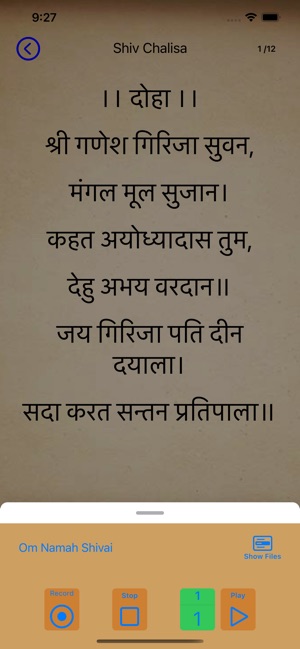 9:27
Shiv Chalisa
1 /12
।। दोहा ।।
श्री गणेश गिरिजा सुवन,
मंगल मूल सुजान।
कहत अयोध्यादास तुम,
देहु अभय वरदान॥
जय गिरिजा पति दीन
दयाला।
सदा करत सन्तन प्रतिपाला॥
Om Namah Shivai
Show Files
Record
Stop
1
1
Play